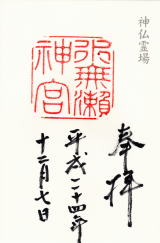 神仏霊場
奉拝
水無瀬
神宮
平成二十四年
十二月七日